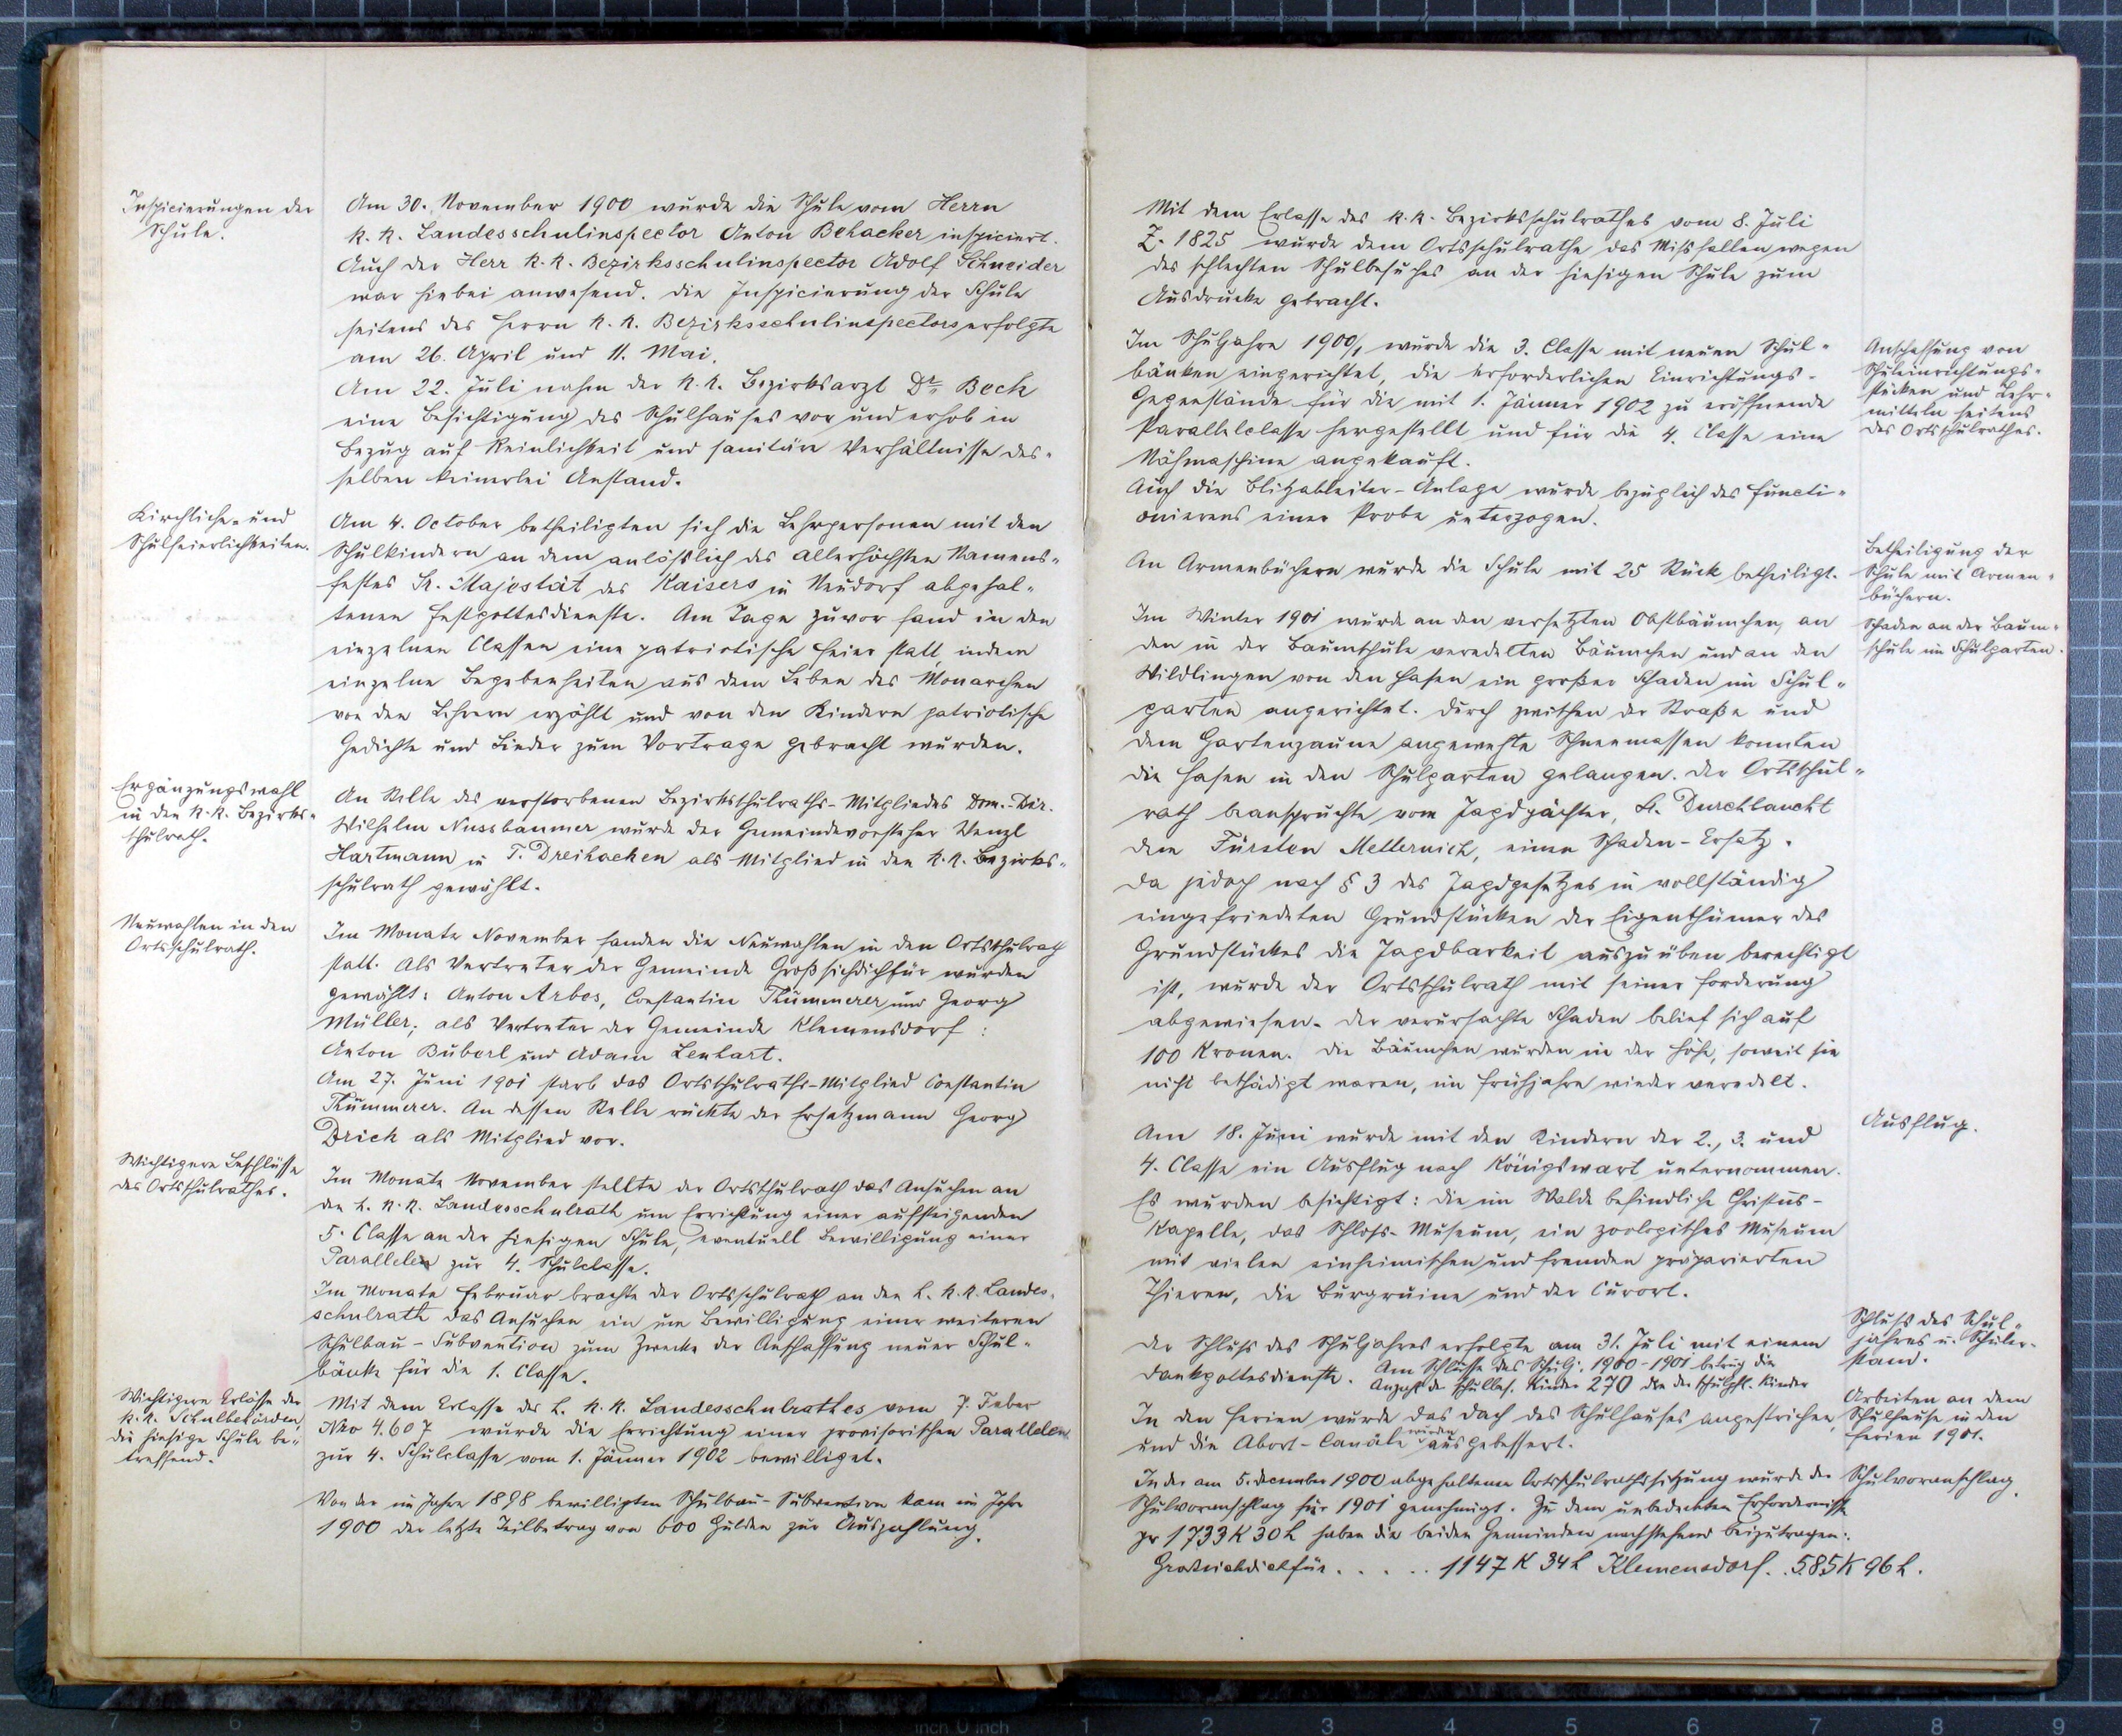 Inspicierungen der
Schule.
Am 30. November 1900 wurde die Schule vom Herrn
k. k. Landesschulinspector Anton Behacker inspiciert.
Auch der Herr k. k. Bezirksschulinspector Adolf Schneider
war hiebei anwesend. Die Inspicierung der Schule
seitens des Herrn k. k. Bezirksschulinspectors erfolgte
am 26. April und 11. Mai.
Am 22. Juli nahm der k. k. Bezirksarzt Dr. Beck
eine Besichtigung des Schulhauses vor und erhob in
Bezug auf Reinlichkeit und sanitäre Verhältnisse des-
selben keinerlei Anstand.
Kirchliche- und
Schulfeierlichkeiten.
Am 4. October betheiligten sich die Lehrpersonen mit den
Schulkindern an dem anlässlich des allerhöchsten Namens-
festes Sr. Majestät des Kaisers in Neudorf abgehal-
tenen Festgottesdienste. Am Tage zuvor fand in den
einzelnen Classen eine patriotische Feier statt, indem
einzelne Begebenheiten aus dem Leben des Monarchen
von den Lehrern erzählt und von den Kindern patriotische
Gedichte und Lieder zum Vortrage gebracht wurden.
Ergänzungswahl
in den k. k. Bezirks-
schulrath.
An Stelle des verstorbenen Bezirksschulraths-Mitgliedes Dom.-Dir.
Wilhelm Nussbaumer wurde der Gemeindevorsteher Wenzl
Hartmann in T. Dreihacken als Mitglied in den k. k. Bezirks-
schulrath gewählt.
Neuwahlen in den
Ortsschulrath.
Im Monate November fanden die Neuwahlen in den Ortsschulrath
statt. Als Vertreter der Gemeinde Großsichdichfür wurden
gewählt: Anton Arbes, Constantin Thümmerer und Georg
Müller; als Vertreter der Gemeinde Klemensdorf:
Anton Büberl und Adam Lenhart.
Am 27. Juni 1901 starb das Ortsschulraths-Mitglied Constantin
Thümmerer. An dessen Stelle rückte der Ersatzmann Georg
Drick als Mitglied vor.
Wichtigere Beschlüsse
des Ortsschulrathes.
Im Monate November stellte der Ortsschulrath das Ansuchen an
den h. k. k. Landesschulrath um Errichtung einer aufsteigenden
5. Classe an der hiesigen Schule, eventuell Bewilligung einer
Parallelen zur 4. Schulclasse.
Im Monate Februar brachte der Ortsschulrath an den h. k. k. Landes-
schulrath das Ansuchen ein um Bewilligung einer weiteren
Schulbau-Subvention zum Zwecke der Anschaffung neuer Schul-
bänke für die 1. Classe.
Wichtigere Erlässe der
k. k. Schulbehörden,
die hiesige Schule be-
treffend.
Mit dem Erlasse des h. k. k. Landesschulrathes vom 7. Feber
Nro 4.607 wurde die Errichtung einer provisorischen Parallelen
zur 4. Schulclasse vom 1. Jänner 1902 bewilliget.
Von der im Jahre 1898 bewilligten Schulbau-Subvention kam im Jahre
1900 der letzte Teilbetrag von 600 Gulden zur Auszahlung.
Mit dem Erlasse des k. k. Bezirksschulrathes vom 8. Juli
Z. 1825 wurde dem Ortsschulrathe das Missfallen wegen
des schlechten Schulbesuches an der hiesigen Schule zum
Ausdrucke gebracht.
Im Schuljahre 1900/1 wurde die 3. Classe mit neuen Schul-
bänken eingerichtet, die erforderlichen Einrichtungs-
Gegenstände für die mit 1. Jänner 1902 zu eröffnende
Parallelclasse hergestellt und für die 4. Classe eine
Nähmaschine angekauft.
Auch die Blitzableiter-Anlage wurde bezüglich des Functi-
onierens einer Probe unterzogen.
Anschaffung von
Schuleinrichtungs-
stücken und Lehr-
mitteln seitens
des Ortsschulrathes.
An Armenbüchern wurde die Schule mit 25 Stück betheiligt.
Betheiligung der
Schule mit Armen-
büchern.
Im Winter 1901 wurde an den versetzten Obstbäumchen, an
den in der Baumschule veredelten Bäumchen und an den
Wildlingen von den Hasen ein großer Schaden im Schul-
garten angerichtet. Durch zwischen der Straße und
dem Gartenzaune angewehte Schneemassen konnten
die Hasen in den Schulgarten gelangen. Der Ortsschul-
rath beanspruchte vom Jagdpächter, Sr. Durchlaucht
dem Fürsten Metternich, einen Schaden-Ersatz.
Da jedoch nach § 3 des Jagdgesetzes in vollständig
eingefriedeten Grundstücken der Eigenthümer des
Grundstückes die Jagdbarkeit auszuüben berechtigt
ist, wurde der Ortsschulrath mit seiner Forderung
abgewiesen. Der verursachte Schaden belief sich auf
100 Kronen. Die Bäumchen wurden in der Höhe, soweit sie
nicht beschädigt waren, im Frühjahre wieder veredelt.
Schaden an der Baum-
schule im Schulgarten.
Am 18. Juni wurde mit den Kindern der 2., 3. und
4. Classe ein Ausflug nach Königswart unternommen.
Es wurden besichtigt: die im Walde befindliche Christus-
Kapelle, das Schloss-Museum, ein zoologisches Museum
mit vielen einheimischen und fremden präparierten
Thieren, die Burgruine und der Curort.
Ausflug.
Der Schluss des Schuljahres erfolgte am 31. Juli mit einem
Dankgottesdienste. Am Schlusse des Schulj. 1900-1901 betrug die
Anzahl der schulbes. Kinder 270 der schulpfl. Kinder
Schluss des Schul-
jahres u. Schüler-
stand.
In den Ferien wurde das Dach des Schulhauses angestrichen,
und die Abort-Canäle wurden ausgebessert.
Arbeiten an dem
Schulhause in den
Ferien 1901.
In der am 5. December 1900 abgehaltenen Ortsschulrathssitzung wurde der
Schulvoranschlag für 1901 genehmigt. Zu dem unbedeckten Erfordernisse
pr 1733 K 30 h haben die beiden Gemeinden nachstehend beizutragen:
Großsichdichfür . . . . . 1147 K 34 h Klemensdorf . . 585 K 96 h.
Schulvoranschlag.